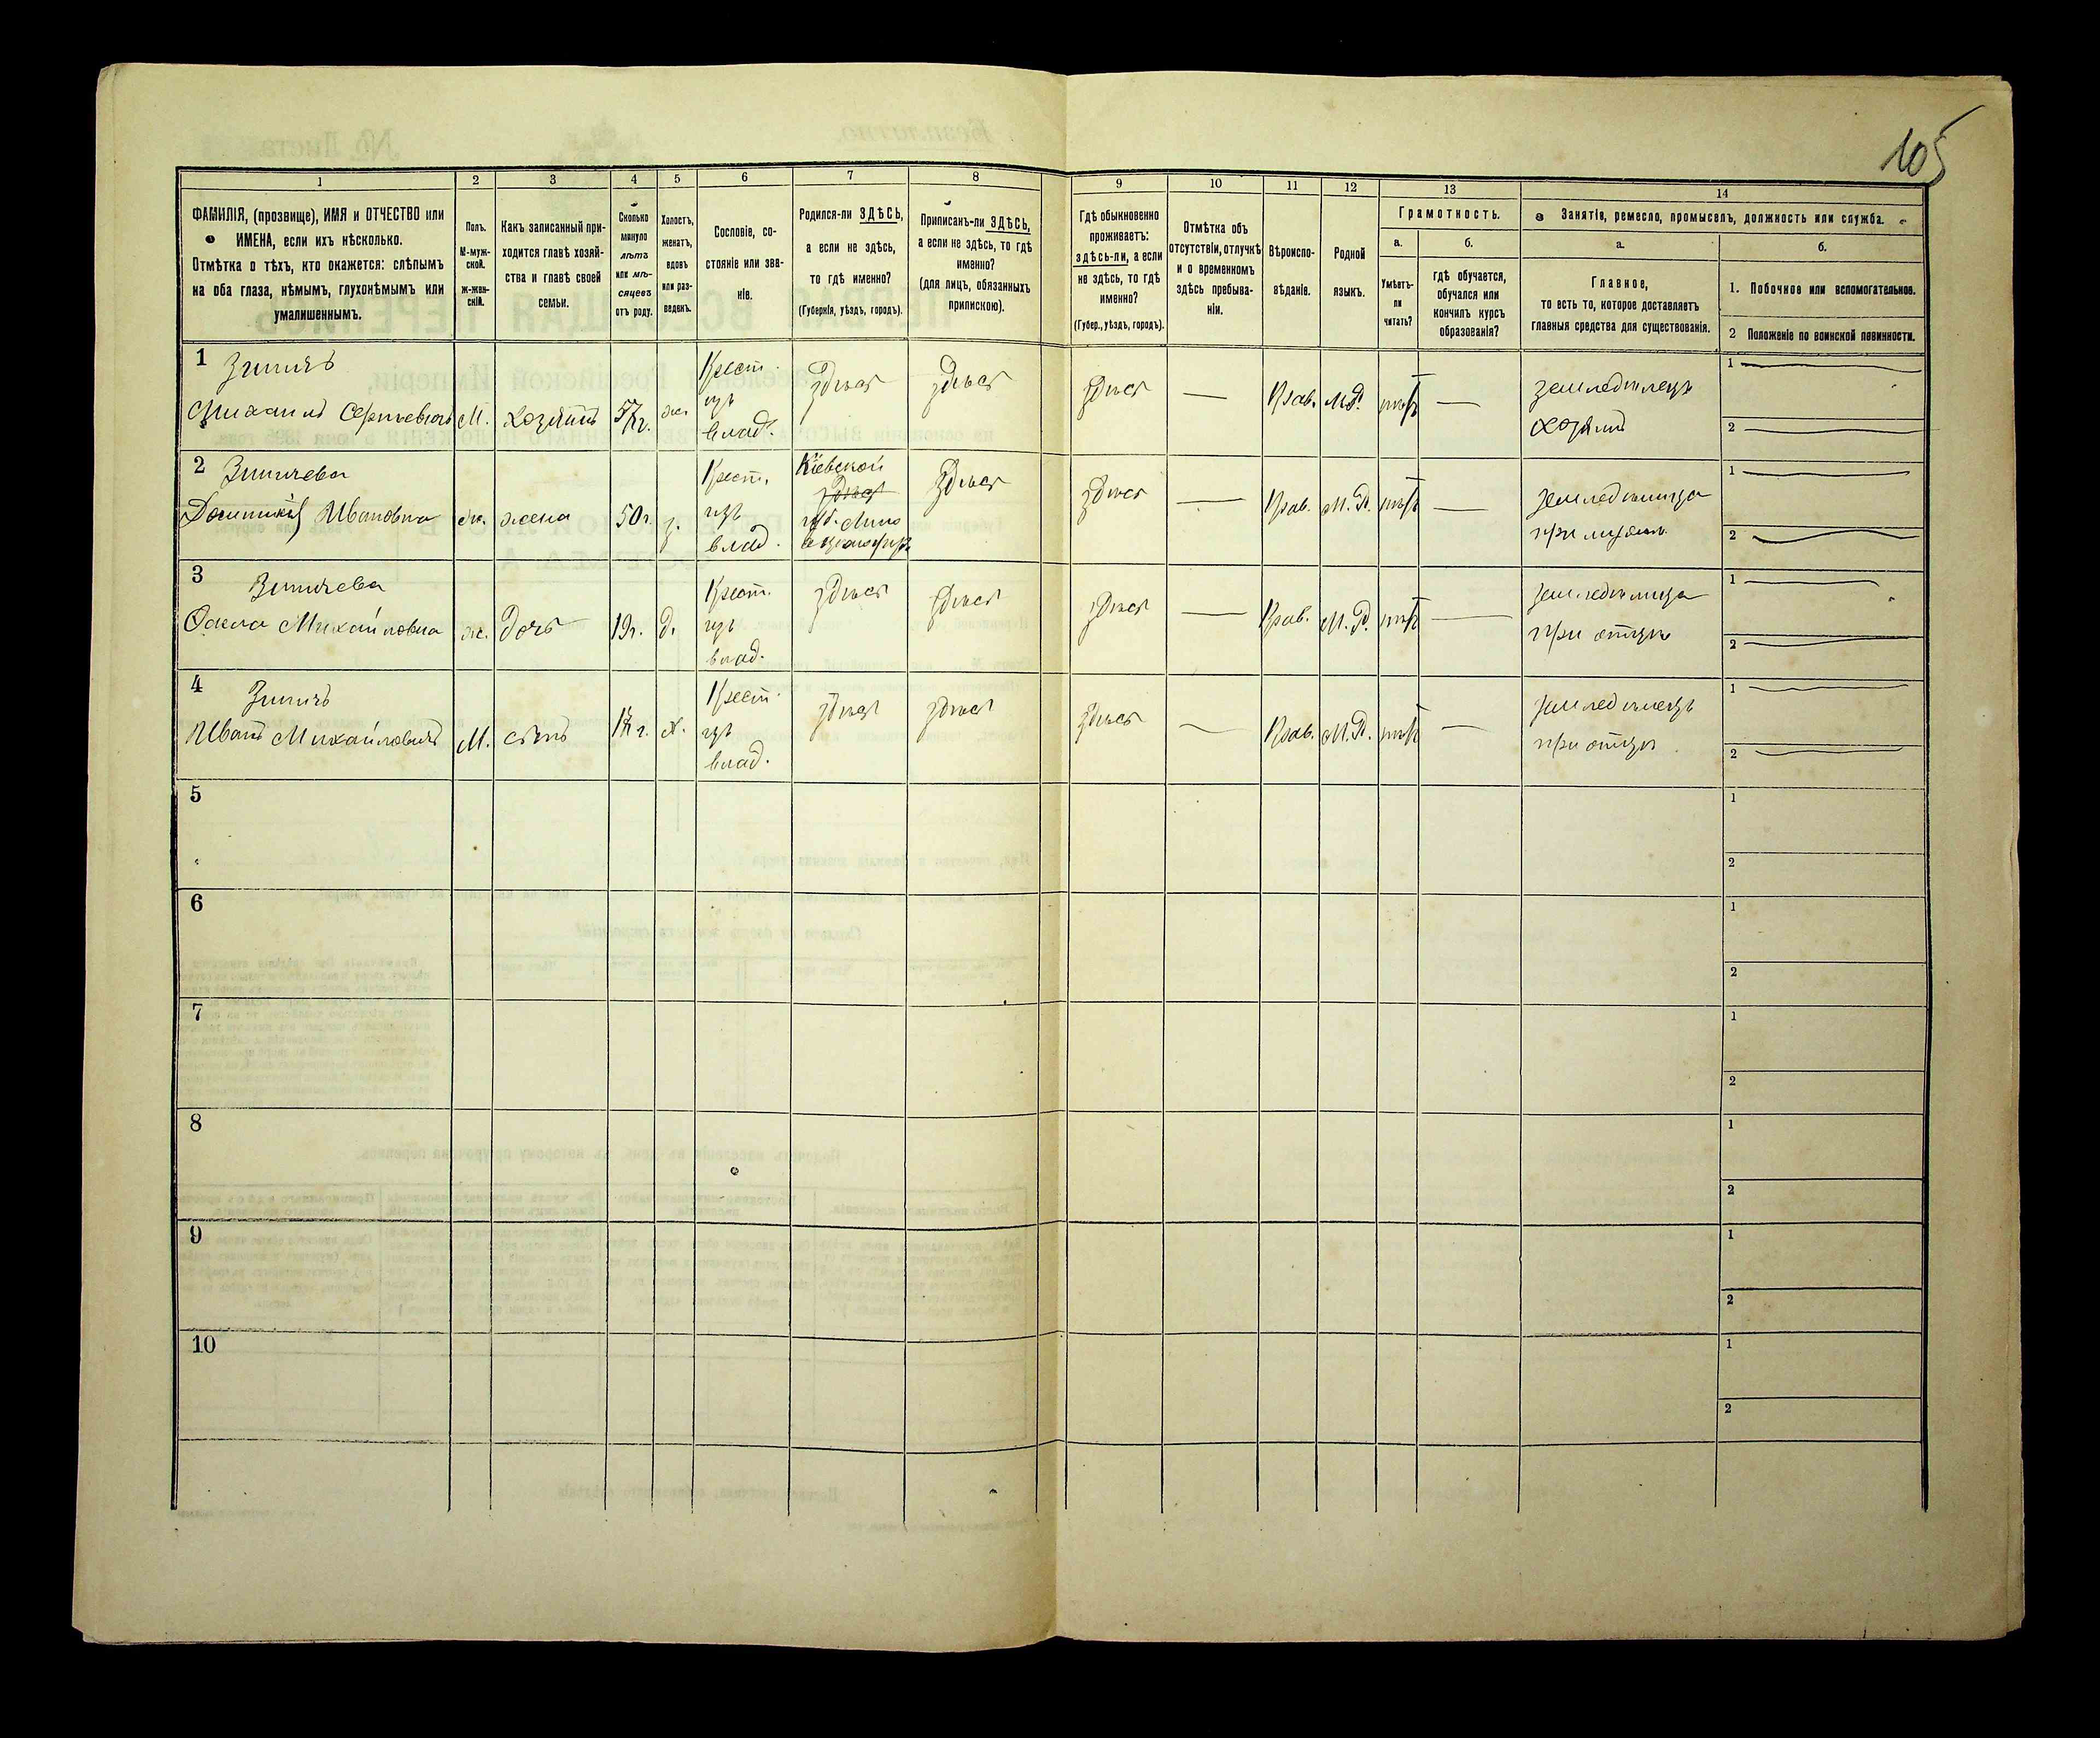 105
1 2 3 4 5 6 7 8 9 10 11 12 13 14
ФАМИЛІЯ, (прозвище), ИМЯ и ОТЧЕСТВО или
ИМЕНА, если ихъ нѣсколько.
Отмѣтка о тѣхъ, кто окажется: слѣпымъ
на оба глаза, нѣмымъ, глухонѣмымъ или
умалишеннымъ.
Полъ.
М-муж-
ской.
ж-жен-
скій.
Какъ записанный при-
ходится главѣ хозяй-
ства и главѣ своей
семьи.
Сколько
минуло
лѣтъ
или мѣ-
сяцевъ
отъ роду.
Холостъ,
женатъ,
вдовъ
или раз-
веденъ.
Сословіе, со-
стояніе или зва-
ніе.
Родился-ли ЗДѢСЬ,
а если не здѣсь,
то гдѣ именно?
(Губернія, уѣздъ, городъ).
Приписанъ-ли ЗДѢСЬ,
а если не здѣсь, то гдѣ
именно?
(для лицъ, обязанныхъ
припискою).
Гдѣ обыкновенно
проживаетъ:
здѣсь-ли, а если
не здѣсь, то гдѣ
именно?
(Губер., уѣздъ, городъ).
Отмѣтка объ
отсутствіи, отлучкѣ
и о временномъ
здѣсь пребыва-
ніи.
Вѣроиспо-
вѣданіе.
Родной
языкъ.
Грамотность.
а.
Умѣетъ-
ли
читать?
б.
гдѣ обучается,
обучался или
кончилъ курсъ
образованія?
Занятіе, ремесло, промыселъ, должность или служба.
а.
Главное,
то есть то, которое доставляетъ
главныя средства для существованія.
б.
1. Побочное или вспомогательное.
2 Положеніе по воинской повинности.
1 Зиничъ
Михаилъ Сергѣевичъ
М.
хозяинъ
57 г.
ж.
Крест.
изъ
влад.
здѣсь
здѣсь
здѣсь
—
Прав.
М.Р.
нѣтъ
—
земледѣлецъ
хозяинъ
1
2
2 Зиничева
Ивановна
ж.
жена
50 г.
з.
Крест.
изъ
влад.
Кіевской
здѣсь
губ.
здѣсь
здѣсь
—
Прав.
М.Р.
нѣтъ
—
земледѣлица
при мужѣ
1
2
3 Зиничева
Ѳекла Михайловна
ж.
дочь
19 г.
д.
Крест.
изъ
влад.
здѣсь
здѣсь
здѣсь
—
Прав.
М.Р.
нѣтъ
—
земледѣлица
при отцѣ
1
2
4 Зиничъ
Иванъ Михайловичъ
М.
сынъ
г.
х.
Крест.
изъ
влад.
здѣсь
здѣсь
здѣсь
—
Прав.
М.Р.
нѣтъ
—
земледѣлецъ
при отцѣ
1
2
5
1
2
6
1
2
7
1
2
8
1
2
9
1
2
10
1
2